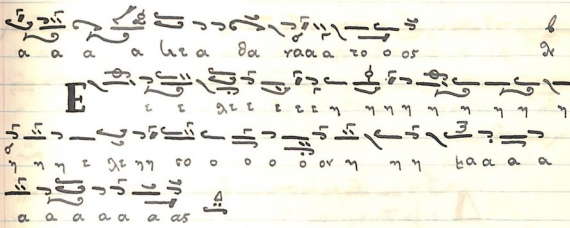 α α α α θα νααα το ο ος
Ε ε ε λε ε ε ε ε η η η η η η η η η
η η η ε λε η η σο ο ο ο ο ον η η η μα α α α
α α α α α α ας Δ